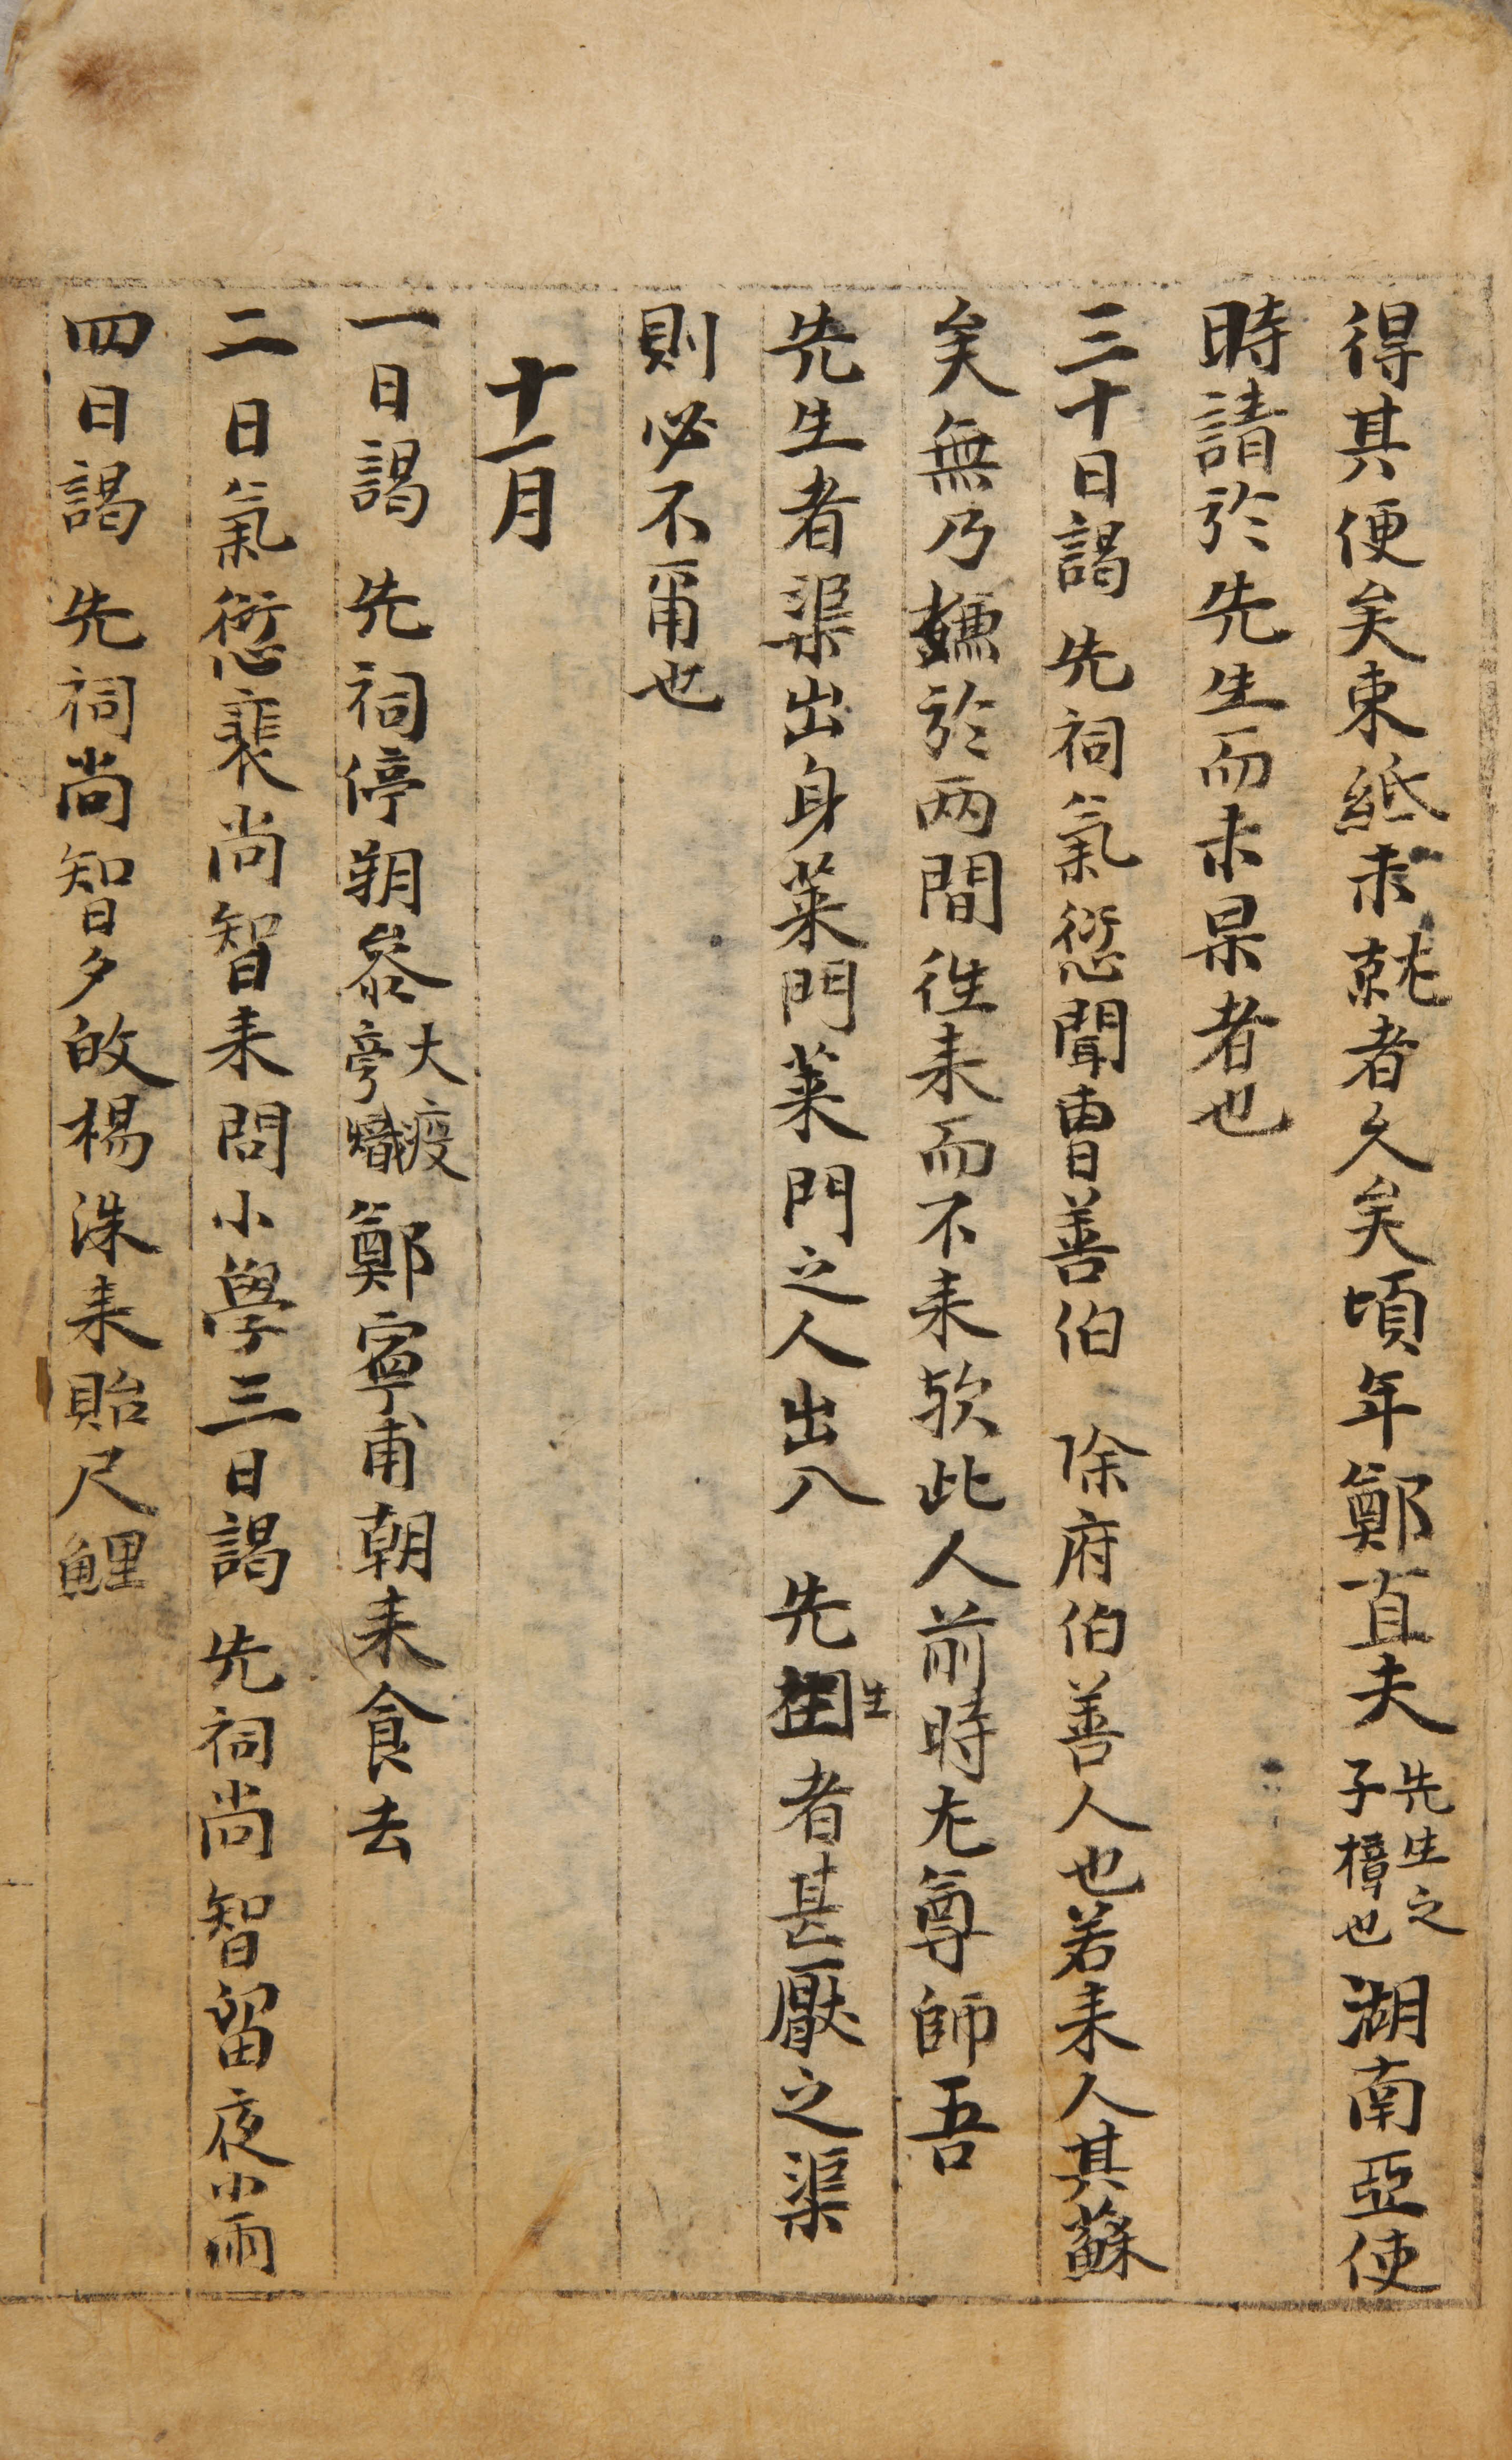 得其便矣束紙未就者久矣頃年鄭直夫先生之子樟也湖南亞使
時請於先生而未果者也
三十日謁 先祠氣愆聞曺善伯 除府伯善人也若来人其蘇
矣無乃嫌於两間徃来而不来欤此人前時尤尊師吾
先生者渠出身萊門萊門之人出入 先生者甚厭之渠
則必不甭也
十一月
一日謁 先祠停朔叅大疫旁熾鄭寗甫朝来食去
二日氣愆裴尚智来問小學三日謁 先祠尚智留夜小雨
四日謁 先祠尚智夕啟楊洙来貽尺鯉